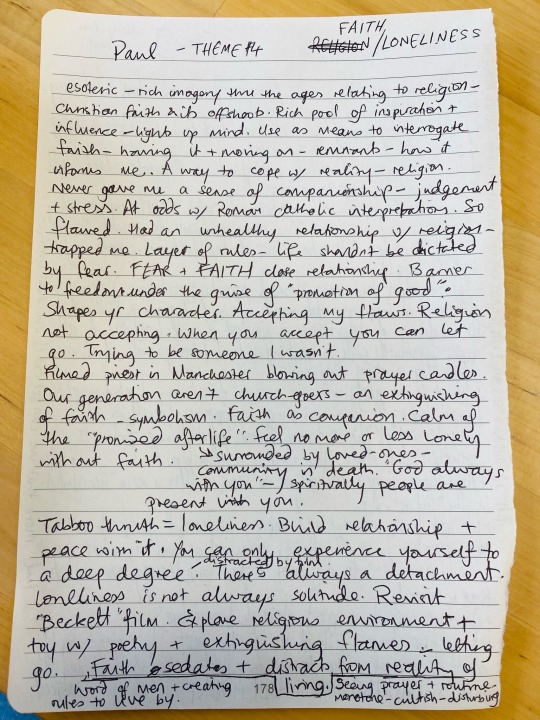 Paul - THEME #4 FAITH
RELIGION/LONELINESS
esoteric - rich imagery thru the ages relating to religion -
christian faith & its offshoots. Rich pool of inspiration +
influence - lights up mind. Use as means to interrogate
faith - having it + moving on - remnants - how it
informs me.. A way to cope w/ reality - religion.
Never gave me a sense of companionship - judgement
+ stress. At odds w/ Roman Catholic interpretation. So
flawed. Had an unhealthy relationship w/ religion -
trapped me. Layer of rules - life shouldn't be dictated
by fear. FEAR + FAITH close relationship. Barrier
to freedom under the guise of "promotion of good".
Shapes yr character. Accepting my flaws. Religion
not accepting. When you accept you can let
go. Trying to be someone I wasn't.
Filmed priest in Manchester blowing out prayer candles.
Our generation aren't church-goers - an extinguishing
of faith - symbolism. Faith as companion. Calm of
the "promised afterlife". Feel no more or less lonely
without faith. ↳ surrounded by loved-ones -
community in death. "God always
with you" - / spiritually people are
present with you.
Tabboo thruth = loneliness. Build relationship +
peace with it. You can only experience yourself to
a deep degree. - distracted by
There's always a detachment.
Lonelliness is not always solitude. Revisit
"Beckett" film. Explore religious environment +
toy w/ poetry + extinguishing flames - letting
go. Faith sedates + distracts from reality of
living.
word of men + creating
rules to live by.
178
Seeing prayer + routine -
monotone - cultish - disturbing